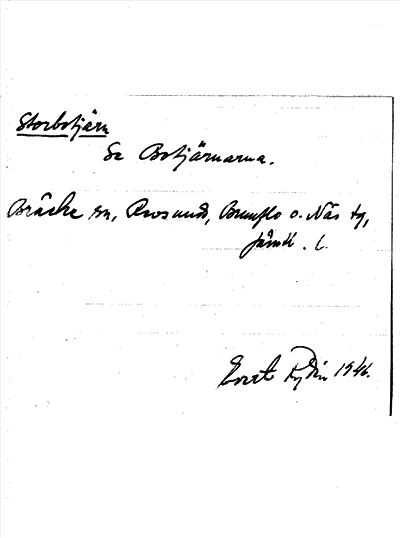 Storbotjärn
Se Botjärnarna.
Bräcke sn, Revsunds, Brunflo o. Näs tg,
Jämtl. l.
Evert Rydin 1946.